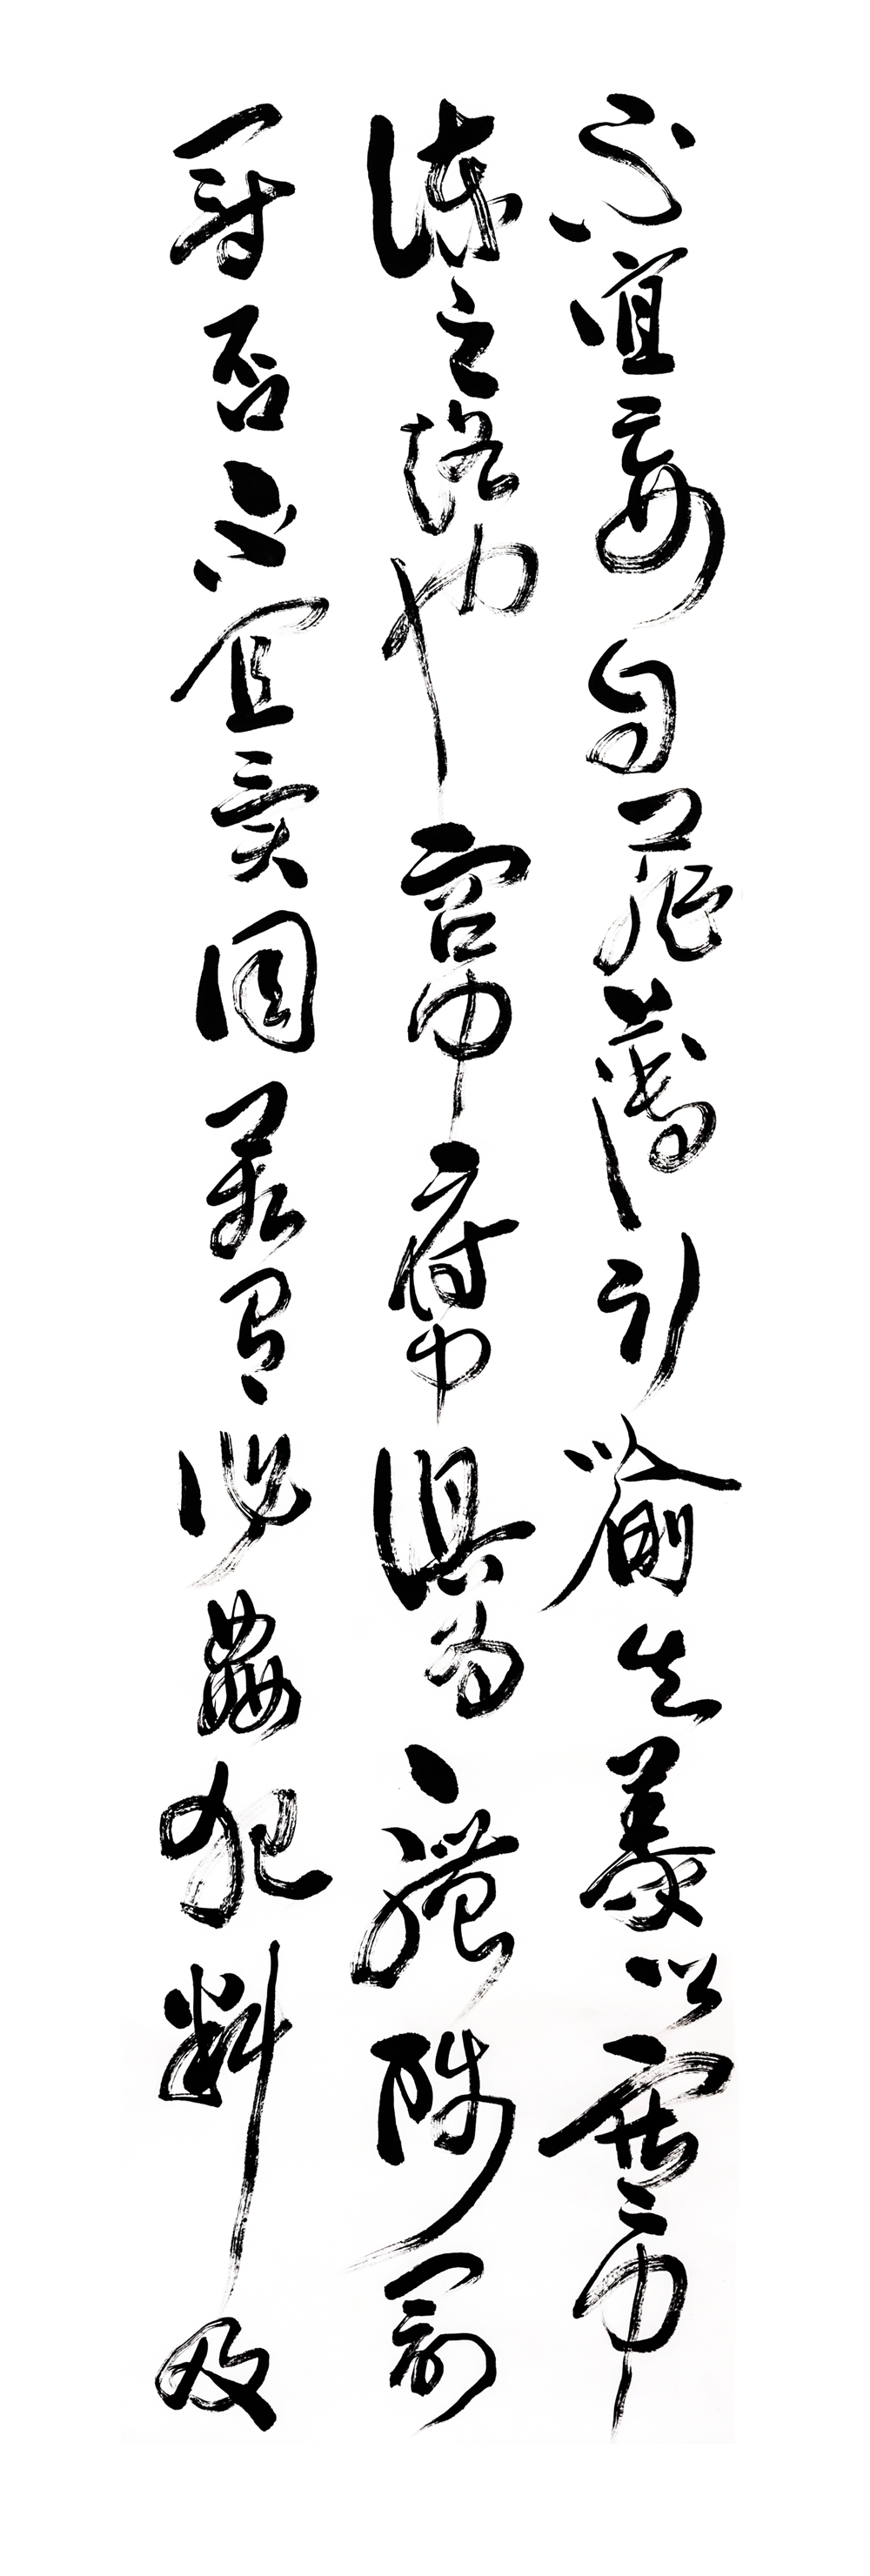 不宜妄自菲薄引喻失义以塞忠
谏之路也宫中府中俱为一体陟罚
臧否不宜异同若有作奸犯科及